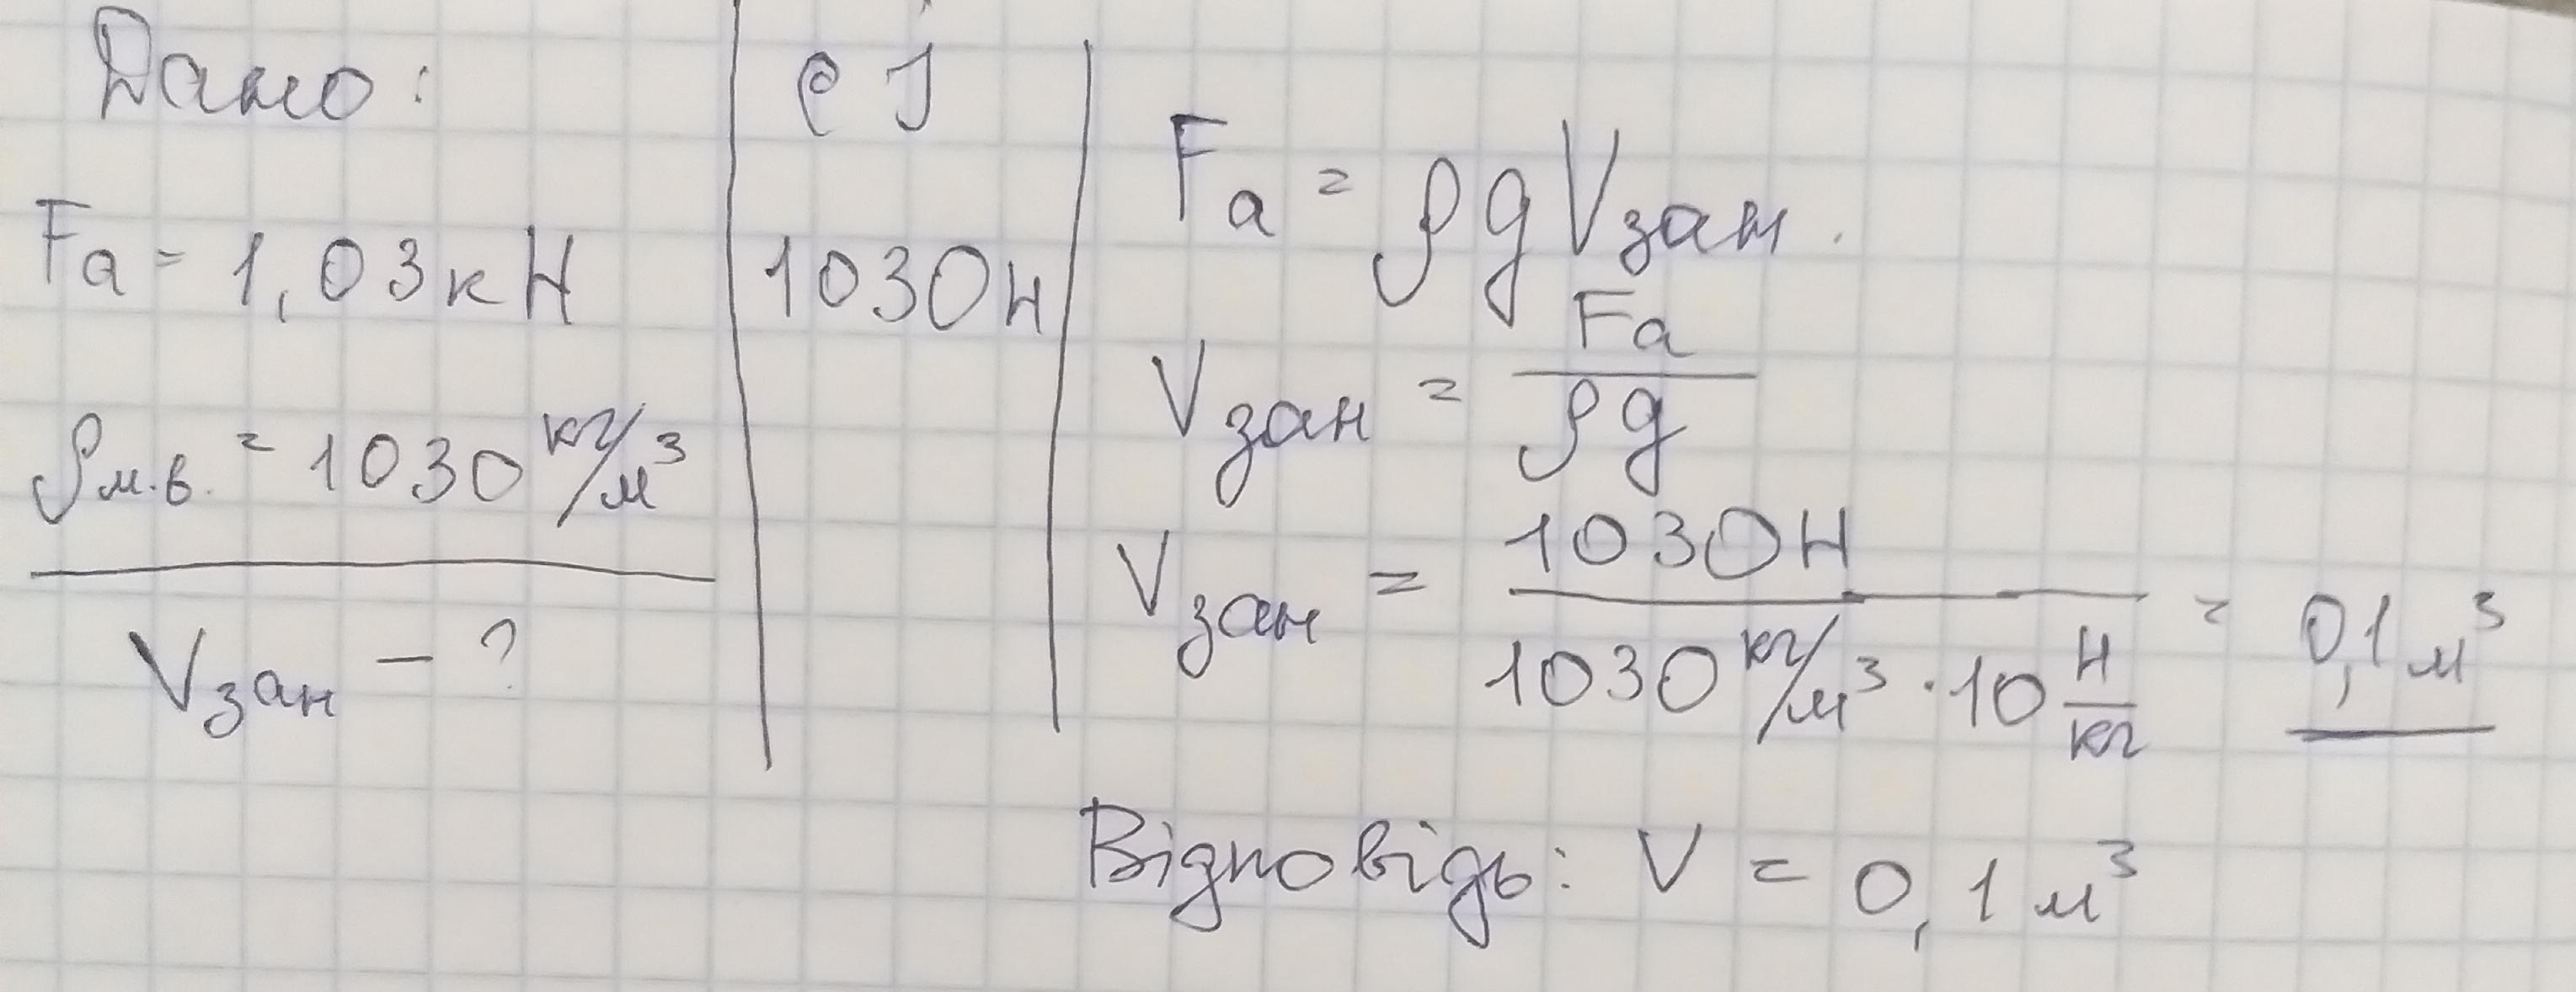 Дано:
Fa = 1,03 кН
ρм.в. = 1030 кг/м³
Vзан - ?
СІ
1030 н
Fa = ρgVзан.
Vзан = Fa/ρg
Vзан = 1030 Н / 1030 кг/м³ · 10 Н/кг = 0,1 м³
Відповідь: V = 0,1 м³